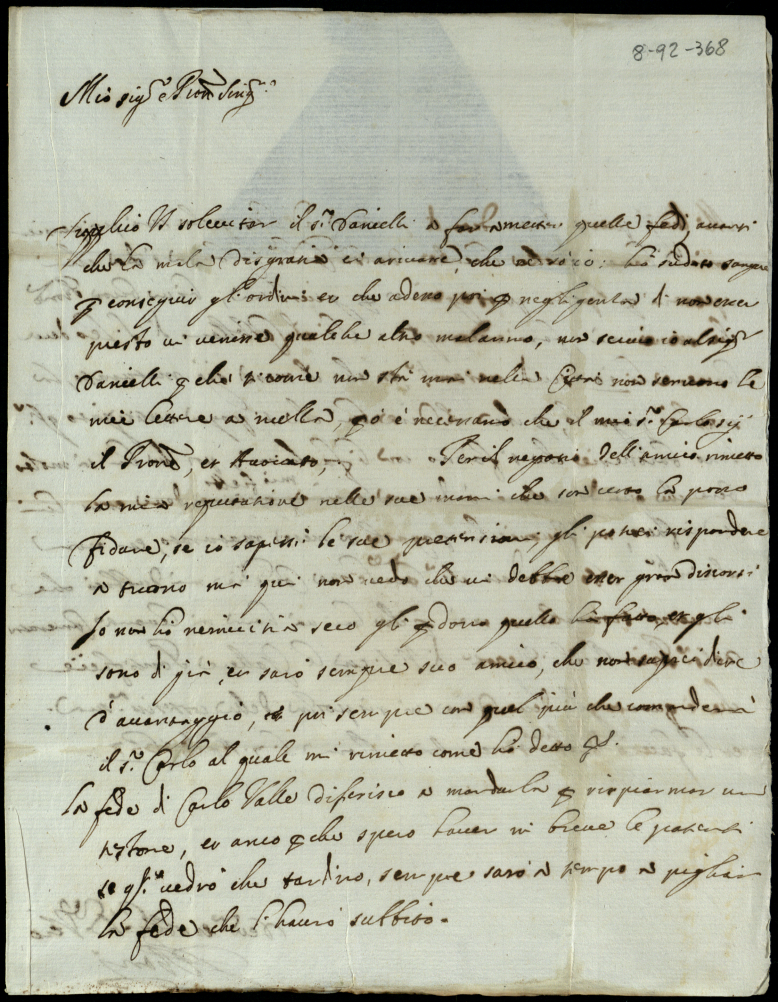 8-92-368
Mio sig.r e Pron Sing.r
Supplico VS solecitar il s.r Danielli a far mettere quelle fedi avanti
che la mala disgratia ci arivasse, che ho sudato sangue
p conseguir gl'ordini et che adesso poi p negligenza di non esser
presto vi venisse qualche altro malanno, non scrivo al sig.r
Danielli p che sicome non stà mai nella Città non servono le
mie lettere a nulla, p ò è necessario che il mio s.r Carlo sij
il Prone, et Avocato, Per il negotio dell'amico rimetto
la mia reputatione nelle sue mani che son certo la posso
fidare, se io sapessi le sue pretensioni, gli potrei rispondere
a tuono ma qui non vedo che vi debba esser gran discorsi
Io non ho nemicitia seco gli p dono quello ha fatto, et gli
sono di già, et sarò sempre suo amico, che non saprei dire
d'avantaggio, et poi sempre con quel più che comanderà
il s.r Carlo al quale mi rimetto come hò detto
la fede di Carlo Valle diferisco a mandarla p rispiarmar un
testone, et anco p che spero haver in breve le patenti
se vedrò che tardino, sempre sarò a tempo a pigliar
la fede che l'havrò subbito.